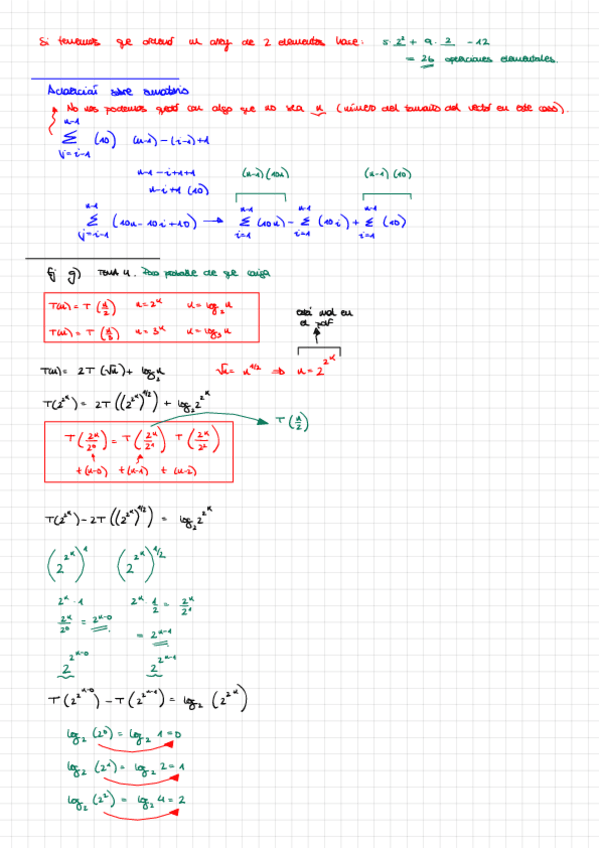 Si tenemos que ordenar un array de 2 elementos hace: 5·2² + 9·2 - 12
= 26 operaciones elementales.
Aclaración sobre sumatorio
No nos podemos quedar con algo que no sea n (número del tamaño del vector en este caso).
n-1
Σ (10) (n-1)-(i-1)+1
j=i-1
n-1-i+1+1
n-i+1 (10)
(n-1)(10n) (n-1)(10)
n-1 n-1 n-1 n-1
Σ (10n-10i+10) → Σ (10n) - Σ (10i) + Σ (10)
j=i-1 i=1 i=1 i=1
Ej g) Tema 4. Poco probable de que caiga
T(n) = T(n/2) n=2^k k=log₂n
T(n) = T(n/3) n=3^k k=log₃n
está mal en
el pdf
T(n) = 2T(√n) + log₂n √n = n^1/2 ⇒ n=2^2^k
T(2^2^k) = 2T((2^2^k)^1/2) + log₂2^2^k
T(n/2)
T(2^k/2^0) = T(2^k/2^1) T(2^k/2^2)
t(k-0) t(k-1) t(k-2)
T(2^2^k) - 2T((2^2^k)^1/2) = log₂2^2^k
(2^2^k)^1 (2^2^k)^1/2
2^k · 1 2^k · 1/2 = 2^k/2^1
2^k/2^0 = 2^k-0
= 2^k-1
2^2^k-0 2^2^k-1
T(2^2^k-0) - T(2^2^k-1) = log₂(2^2^k)
log₂(2^0) = log₂ 1 = 0
log₂(2^1) = log₂ 2 = 1
log₂(2^2) = log₂ 4 = 2